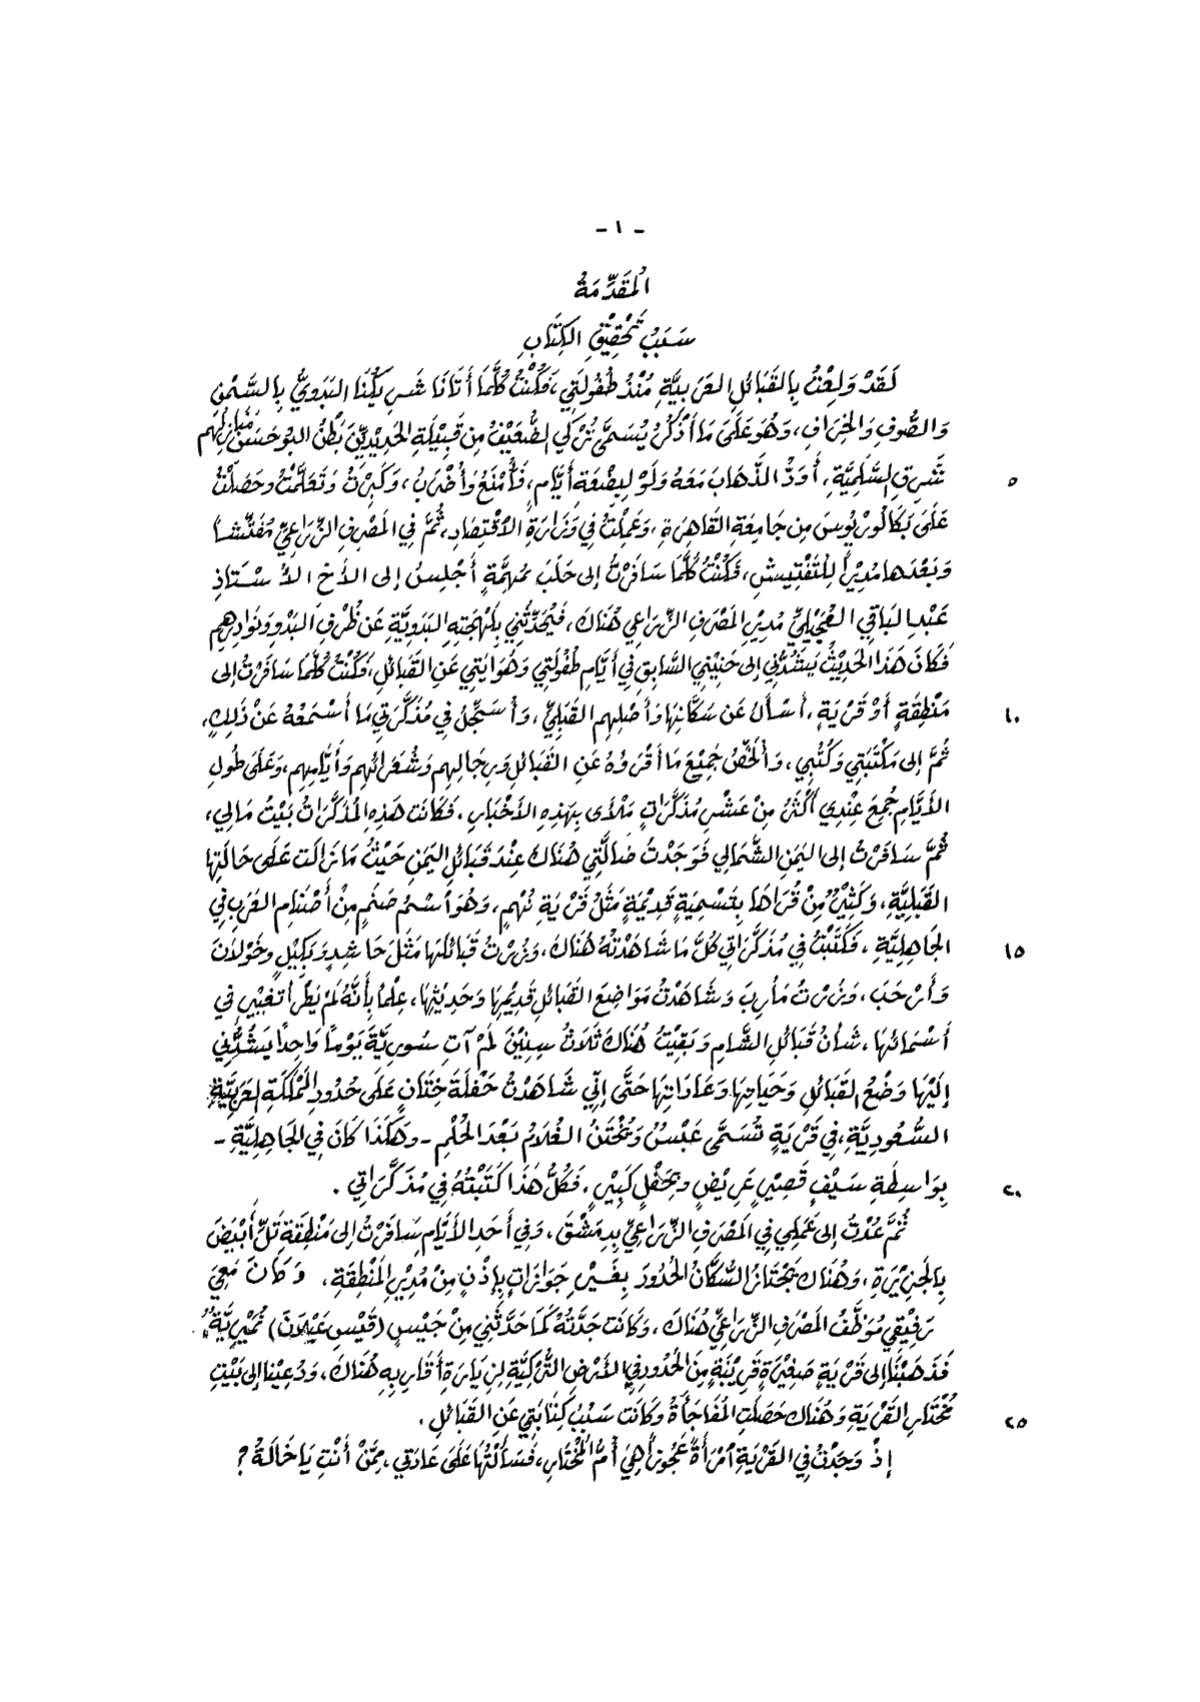 - ١ -
المُقَدِّمَةُ
سَبَبُ تَحْقِيْقِ الكِتَابِ
لَقَدْ وَلِعْتُ بِالقَبَائِلِ العَرَبِيَّةِ مُنْذُ طُفُولَتِي، فَكُنْتُ كُلَّمَا أَتَانَا شَرِيْكُنَا البَدَوِيُّ بِالسَّمْنِ
وَالصُّوفِ وَالخِرَافِ، وَهُوَ عَلَى مَا أَذْكُرُ يُسَمَّى تَرْكِي الضُّعَيْفُ مِن قَبِيْلَةِ الحَدِيْدِيِّيْنَ بَطْنُ البُوحَسَن مَنَازِلُهُم
٥ شَرْقِ السَّلَمِيَّةِ، أَوَدُّ الذَّهَابَ مَعَهُ وَلَوْ لِبِضْعَةِ أَيَّامٍ، فَأُمْنَعُ وَأُضْرَبُ، وَكَبِرْتُ وَتَعَلَّمْتُ وَحَصَلْتُ
عَلَى بَكَالُورْيُوسَ مِن جَامِعَةِ القَاهِرَةِ، وَعَمِلْتُ فِي وَزَارَةِ الاُقْتِصَادِ، ثُمَّ فِي المَصْرِفِ الزِّرَاعِيِّ مُفَتِّشاً
وَبَعْدَهَا مُدِيْراً لِلتَّفْتِيشِ، فَكُنْتُ كُلَّمَا سَافَرْتُ إلى حَلَبَ بِمُهِمَّةٍ أَجْلِسُ إلى الأَخِ الأُسْتَاذِ
عَبْدِ البَاقِي العُجَيْلِيِّ مُدِيْرِ المَصْرَفِ الزِّرَاعِي هُنَاكَ، فَيُحَدِّثُنِي بِلَهْجَتِهِ البَدَوِيَّةِ عَن ظُرْفِ البَدْوِ وَنَوَادِرِهِم
فَكَانَ هَذَا الحَدِيْثُ يَشُدُّنِي إلى حَنِيْنِي السَّابِقِ فِي أَيَّامِ طُفُولَتِي وَهَوَايَتِي عَنِ القَبَائِلِ، فَكُنْتُ كُلَّمَا سَافَرْتُ إلى
١٠ مَنْطِقَةٍ أَوْ قَرْيَةٍ، أَسْأَلُ عَن سُكَّانِهَا وَأَصْلِهِم القَبَلِيِّ، وَأُسَجِّلُ فِي مُذَكَّرَتِي مَا أَسْمَعُهُ عَنْ ذَلِكَ،
ثُمَّ إلى مَكْتَبَتِي وَكُتُبِي، وَأُلَخِّصُ جَمِيْعَ مَا أَقْرَؤُهُ عَنِ القَبَائِلِ وَرِجَالِهِم وَشُعَرَائِهِم وَأَيَّامِهِم، وَعَلَى طُولِ
الأَيَّامِ جُمِعَ عِنْدِي أَكْثَرُ مِنْ عَشْرِ مُذَكَّرَاتٍ مَلْأَى بِهَذِهِ الأَخْبَارِ، فَكَانَت هَذِهِ المُذَكَّرَاتُ بَيْتُ مَالِي،
ثُمَّ سَافَرْتُ إلى اليَمَنِ الشَّمَالِي فَوَجَدْتُ ضَالَّتِي هُنَاكَ عِنْدَ قَبَائِلِ اليَمَنِ حَيْثُ مَا زَالَت عَلَى حَالَتِهَا
القَبَلِيَّةِ، وَكَثِيْرٌ مِنْ قُرَاهَا بِتَسْمِيَةٍ قَدِيْمَةٍ مَثَلُ قَرْيَةِ نُهُم، وَهُوَ اسْمُ صَنَمٍ مِنْ أَصْنَامِ العَرَبِ فِي
١٥ الجَاهِلِيَّةِ، فَكَتَبْتُ فِي مُذَكَّرَاتِي كُلَّ مَا شَاهَدْتُهُ هُنَاكَ، وَزُرْتُ قَبَائِلَهَا مَثَلَ حَاشِدٍ وَبَكِيْلٍ وَخَوْلاَنَ
وَأَرْحَبَ، وَزُرْتُ مَأْرِبَ وَشَاهَدْتُ مَوَاضِعَ القَبَائِلِ قَدِيْمِهَا وَحَدِيْثِهَا، عِلْماً بِأَنَّهُ لَمْ يَطْرَأْ تَغْيِيْرٌ فِي
أَسْمَائِهَا، شَأْنُ قَبَائِلِ الشَّامِ وَبَقِيْتُ هُنَاكَ ثَلاَثُ سِنِيْنَ لَمْ آتِ سُورِيَّةَ يَوْماً وَاحِداً يَشُدُّنِي
إِلَيْهَا وَضْعُ القَبَائِلِ وَحَيَاتِهَا وَعَادَاتِهَا حَتَّى إِنِّي شَاهَدْتُ حَفْلَةَ خِتَانٍ عَلَى حُدُودِ المَمْلَكَةِ العَرَبِيَّةِ
السُّعُودِيَّةِ، فِي قَرْيَةٍ تُسَمَّى عَبْسُ وَيُخْتَنُ الغُلاَمُ بَعْدَ الحُلُمِ - وَهَكَذَا كَانَ فِي الجَاهِلِيَّةِ -
٢٠ بِوَاسِطَةِ سَيْفٍ قَصِيْرٍ عَرِيْضٍ وَبِحَفْلٍ كَبِيْرٍ، فَكُلُّ هَذَا كَتَبْتُهُ فِي مُذَكَّرَاتِي.
ثُمَّ عُدْتُ إلى عَمَلِي فِي المَصْرَفِ الزِّرَاعِيِّ بِدِمَشْقَ، وَفِي أَحَدِ الأَيَّامِ سَافَرْتُ إلى مَنْطِقَةِ تَلِّ أَبْيَضَ
بِالجَزِيْرَةِ، وَهُنَاكَ يَجْتَازُ السُّكَّانُ الحُدُودَ بِغَيْرِ جَوَازَاتٍ بِإِذْنٍ مِنْ مُدِيْرِ المَنْطِقَةِ، وَكَانَ مَعِيَ
رَفِيْقِي مُوَظَّفُ المَصْرَفِ الزِّرَاعِيِّ هُنَاكَ، وَكَانَت جَدَّتُهُ كَمَا حَدَّثَنِي مِنْ جَيْسٍ (قَيْسِ عَيْلاَنَ) نُمَيْرِيَّةٌ،
فَذَهَبْنَا إلى قَرْيَةٍ صَغِيْرَةٍ قَرِيْبَةٍ مِنَ الحُدُودِ فِي الأَرْضِ التُّرْكِيَّةِ لِزِيَارَةِ أَقَارِبِهِ هُنَاكَ، وَدُعِيْنَا إلى بَيْتِ
٢٥ مُخْتَارِ القَرْيَةِ وَهُنَاكَ حَصَلَتِ المُفَاجَأَةُ وَكَانَت سَبَبُ كِتَابَتِي عَنِ القَبَائِلِ.
إِذْ وَجَدْتُ فِي القَرْيَةِ امْرَأَةً عَجُوزاً هِيَ أُمُّ المُخْتَارِ، فَسَأَلْتُهَا عَلَى عَادَتِي، مِمَّنْ أَنْتِ يَا خَالَةُ؟